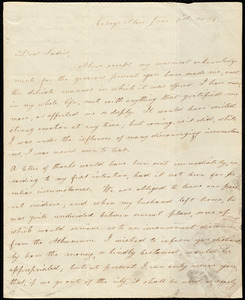 Dear Ladies,
Please accept my warmest acknowledg-
ments for the generous present you have made me, and
the delicate manner in which it was offered. I have never
in my whole life, met with anything that gratified me
more, or affected me so deeply. It would have excited
strong emotion at any time, but coming, as it did, when I
was under the influence of many discouraging circumstan-
ces, it was dear to me
A letter of thanks would have been sent immediately, ac-
cording to my first intention, had it not been for pe-
culiar circumstances. We are obliged to leave our pres-
ent residence, and when my husband left home, he
was quite undecided between several plans, some of
which would remove us to an inconvenient distance
from the Athenaeum. I wished to inform you
how the money, so kindly bestowed, would be
appropriated; but at present I can only assure you,
that if we go out of the city, it shall be